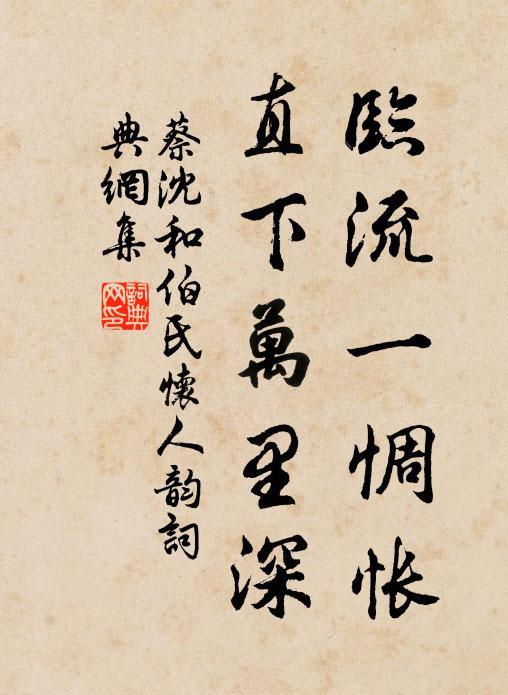 臨流一惆悵
直下萬里深
蔡沈和伯氏懷人韵詞
典網集
詞典網印